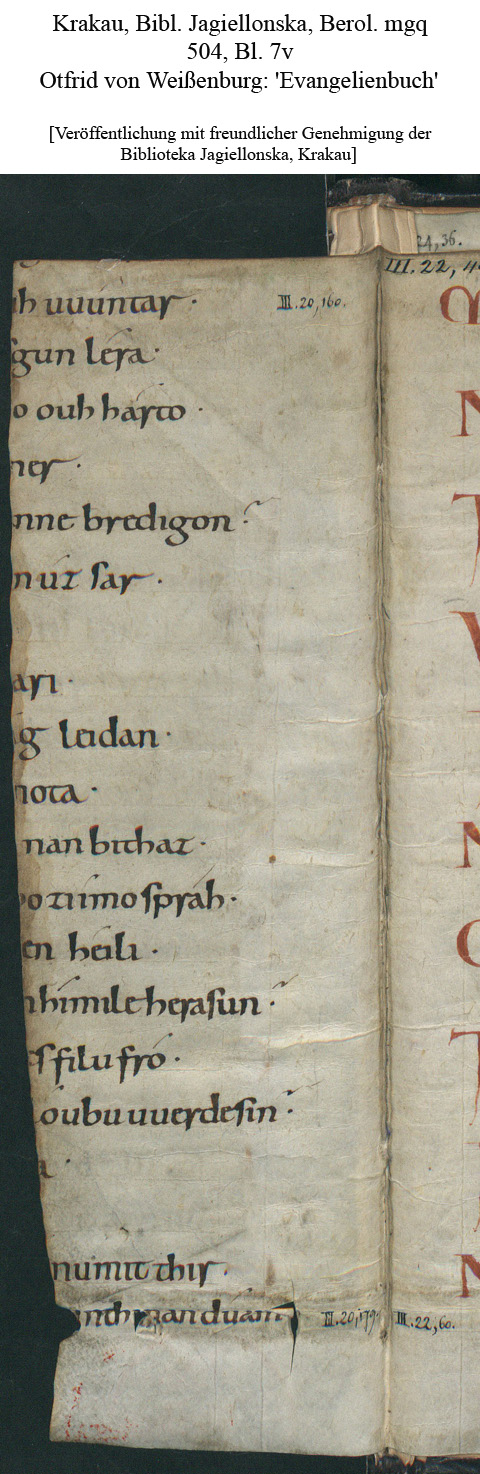 Krakau, Bibl. Jagiellonska, Berol. mgq
504, Bl. 7v
Otfrid von Weißenburg: 'Evangelienbuch'
[Veröffentlichung mit freundlicher Genehmigung der
Biblioteka Jagiellonska, Krakau]
24, 36.
III. 22, 4
ih uuuntar · III. 20, 160.
gun léra ·
N
o ouh harto ·
ner ·
nne bredigon
n uz sar ·
ari ·
g leidan ·
nota ·
nan bithaz ·
N
zi imo sprah ·
en heili ·
himile herasun
filu fro ·
oubu uuerdesin
a ·
nu mit thir ·
N
III. 20, 179 III. 22, 60.